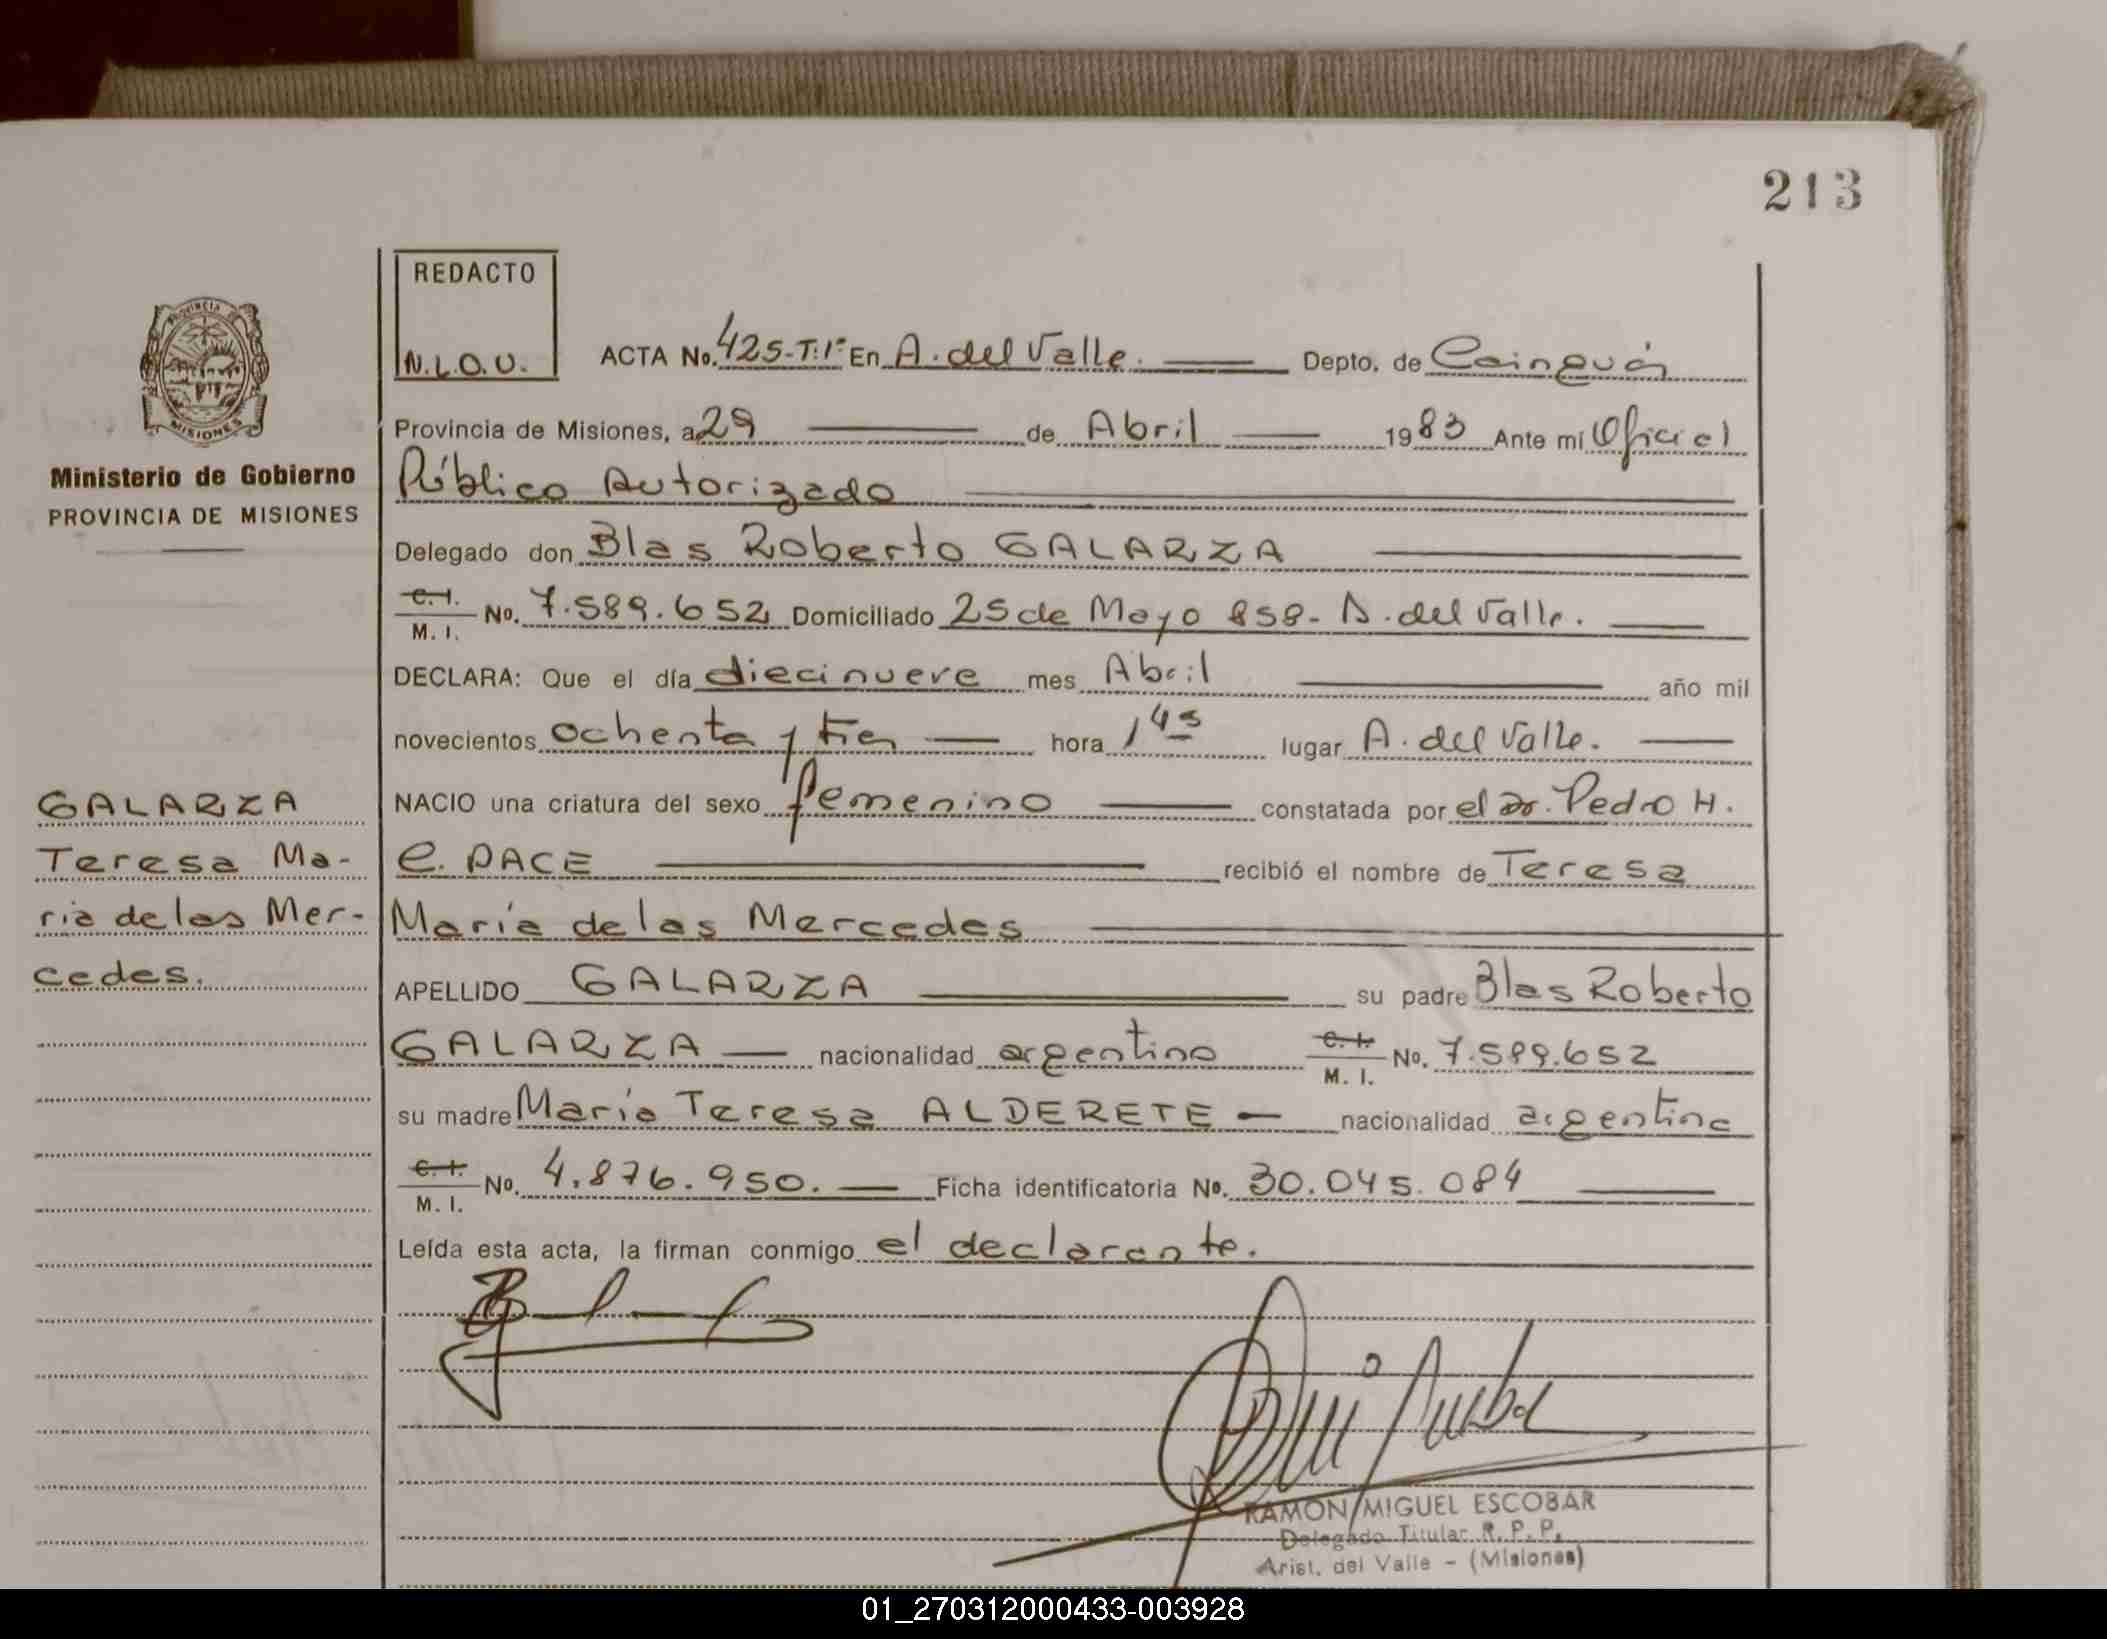 213
REDACTO
N.L.O.U.
ACTA No. 425-T:1º En A. del Valle. Depto. de Cainguás
PROVINCIA DE MISIONES
Ministerio de Gobierno
PROVINCIA DE MISIONES
Provincia de Misiones, a 29 de Abril 1983 Ante mi Oficial
Público Autorizado
Delegado don Blas Roberto GALARZA
C. I.
M. I. No. 7.589.652 Domiciliado 25 de Mayo 858- A. del Valle.
DECLARA: Que el día diecinueve mes Abril año mil
novecientos ochenta y tres hora 1 45 lugar A. del Valle.
NACIO una criatura del sexo femenino constatada por el Dr. Pedro H.
C. PACE recibió el nombre de Teresa
María de las Mercedes
GALARZA
Teresa Ma-
ria de las Mer-
cedes.
APELLIDO GALARZA su padre Blas Roberto
GALARZA nacionalidad argentino C. I.
M. I. No. 7.589.652
su madre María Teresa ALDERETE nacionalidad argentina
C. I.
M. I. No. 4.876.950. Ficha identificatoria No. 30.045.084
Leída esta acta, la firman conmigo el declarante.
RAMON MIGUEL ESCOBAR
Delegado Titular R. P. P.
Arist. del Valle - (Misiones)
01_270312000433-003928